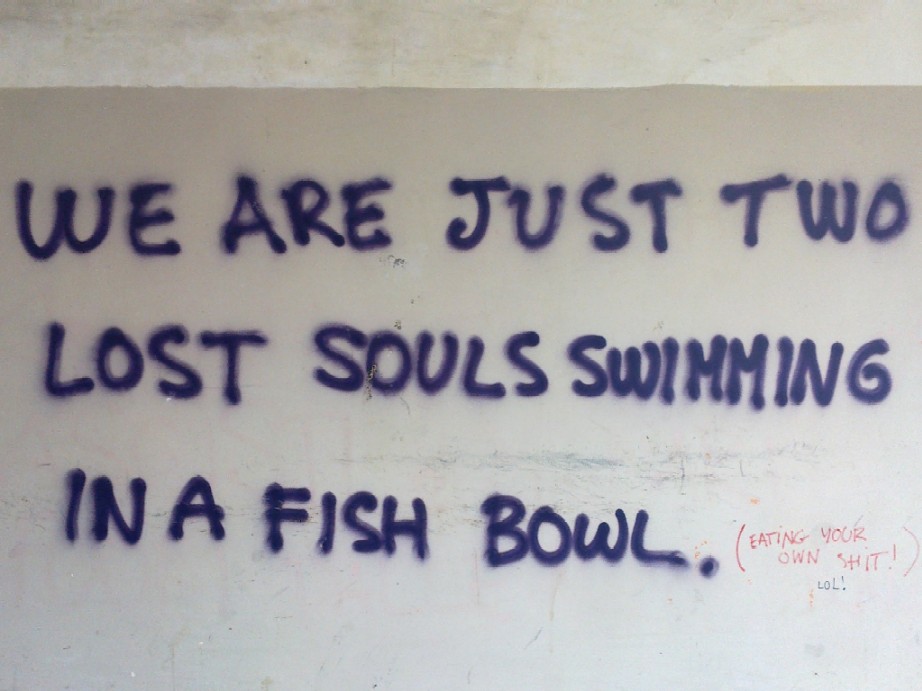 WE ARE JUST TWO
LOST SOULS SWIMMING
IN A FISH BOWL.
(EATING YOUR
OWN SHIT!)
LOL!